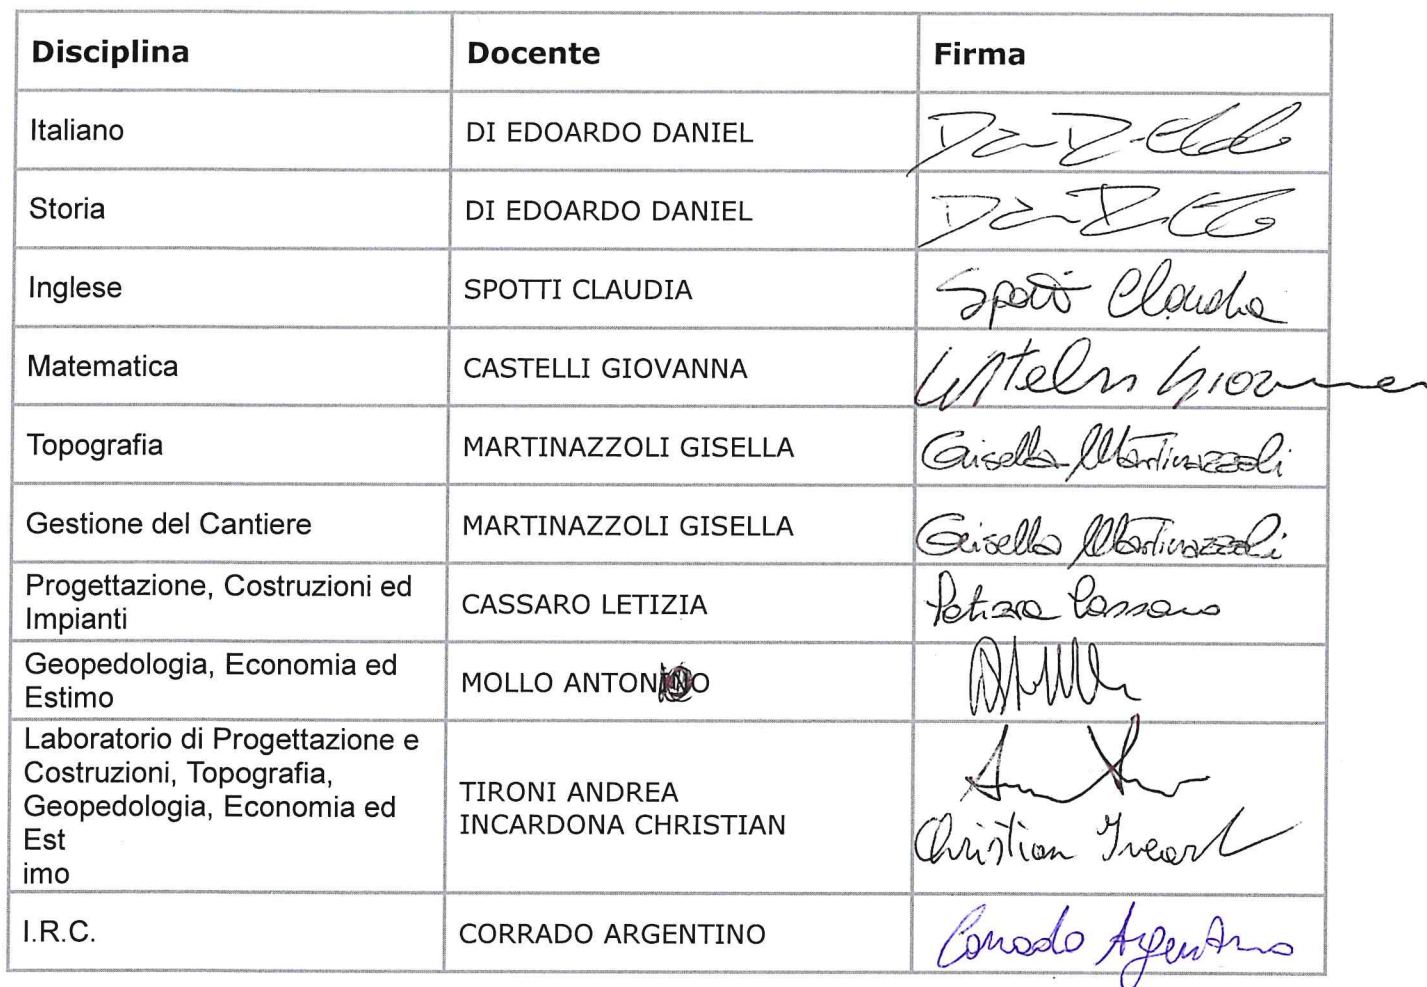 Disciplina Docente Firma
Italiano DI EDOARDO DANIEL
Storia DI EDOARDO DANIEL
Inglese SPOTTI CLAUDIA Spotti Claudia
Matematica CASTELLI GIOVANNA Castelli Giovanna
Topografia MARTINAZZOLI GISELLA Gisella Martinazzoli
Gestione del Cantiere MARTINAZZOLI GISELLA Gisella Martinazzoli
Progettazione, Costruzioni ed
Impianti CASSARO LETIZIA Letizia Cassaro
Geopedologia, Economia ed
Estimo MOLLO
Laboratorio di Progettazione e
Costruzioni, Topografia,
Geopedologia, Economia ed
Est
imo
TIRONI ANDREA
INCARDONA CHRISTIAN
Christian
I.R.C. CORRADO ARGENTINO Corrado Argentino